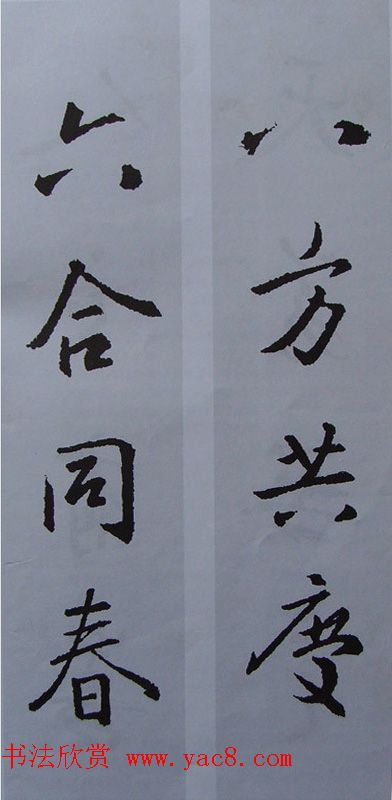 八方共庆
六合同春
书法欣赏 www.yac8.com